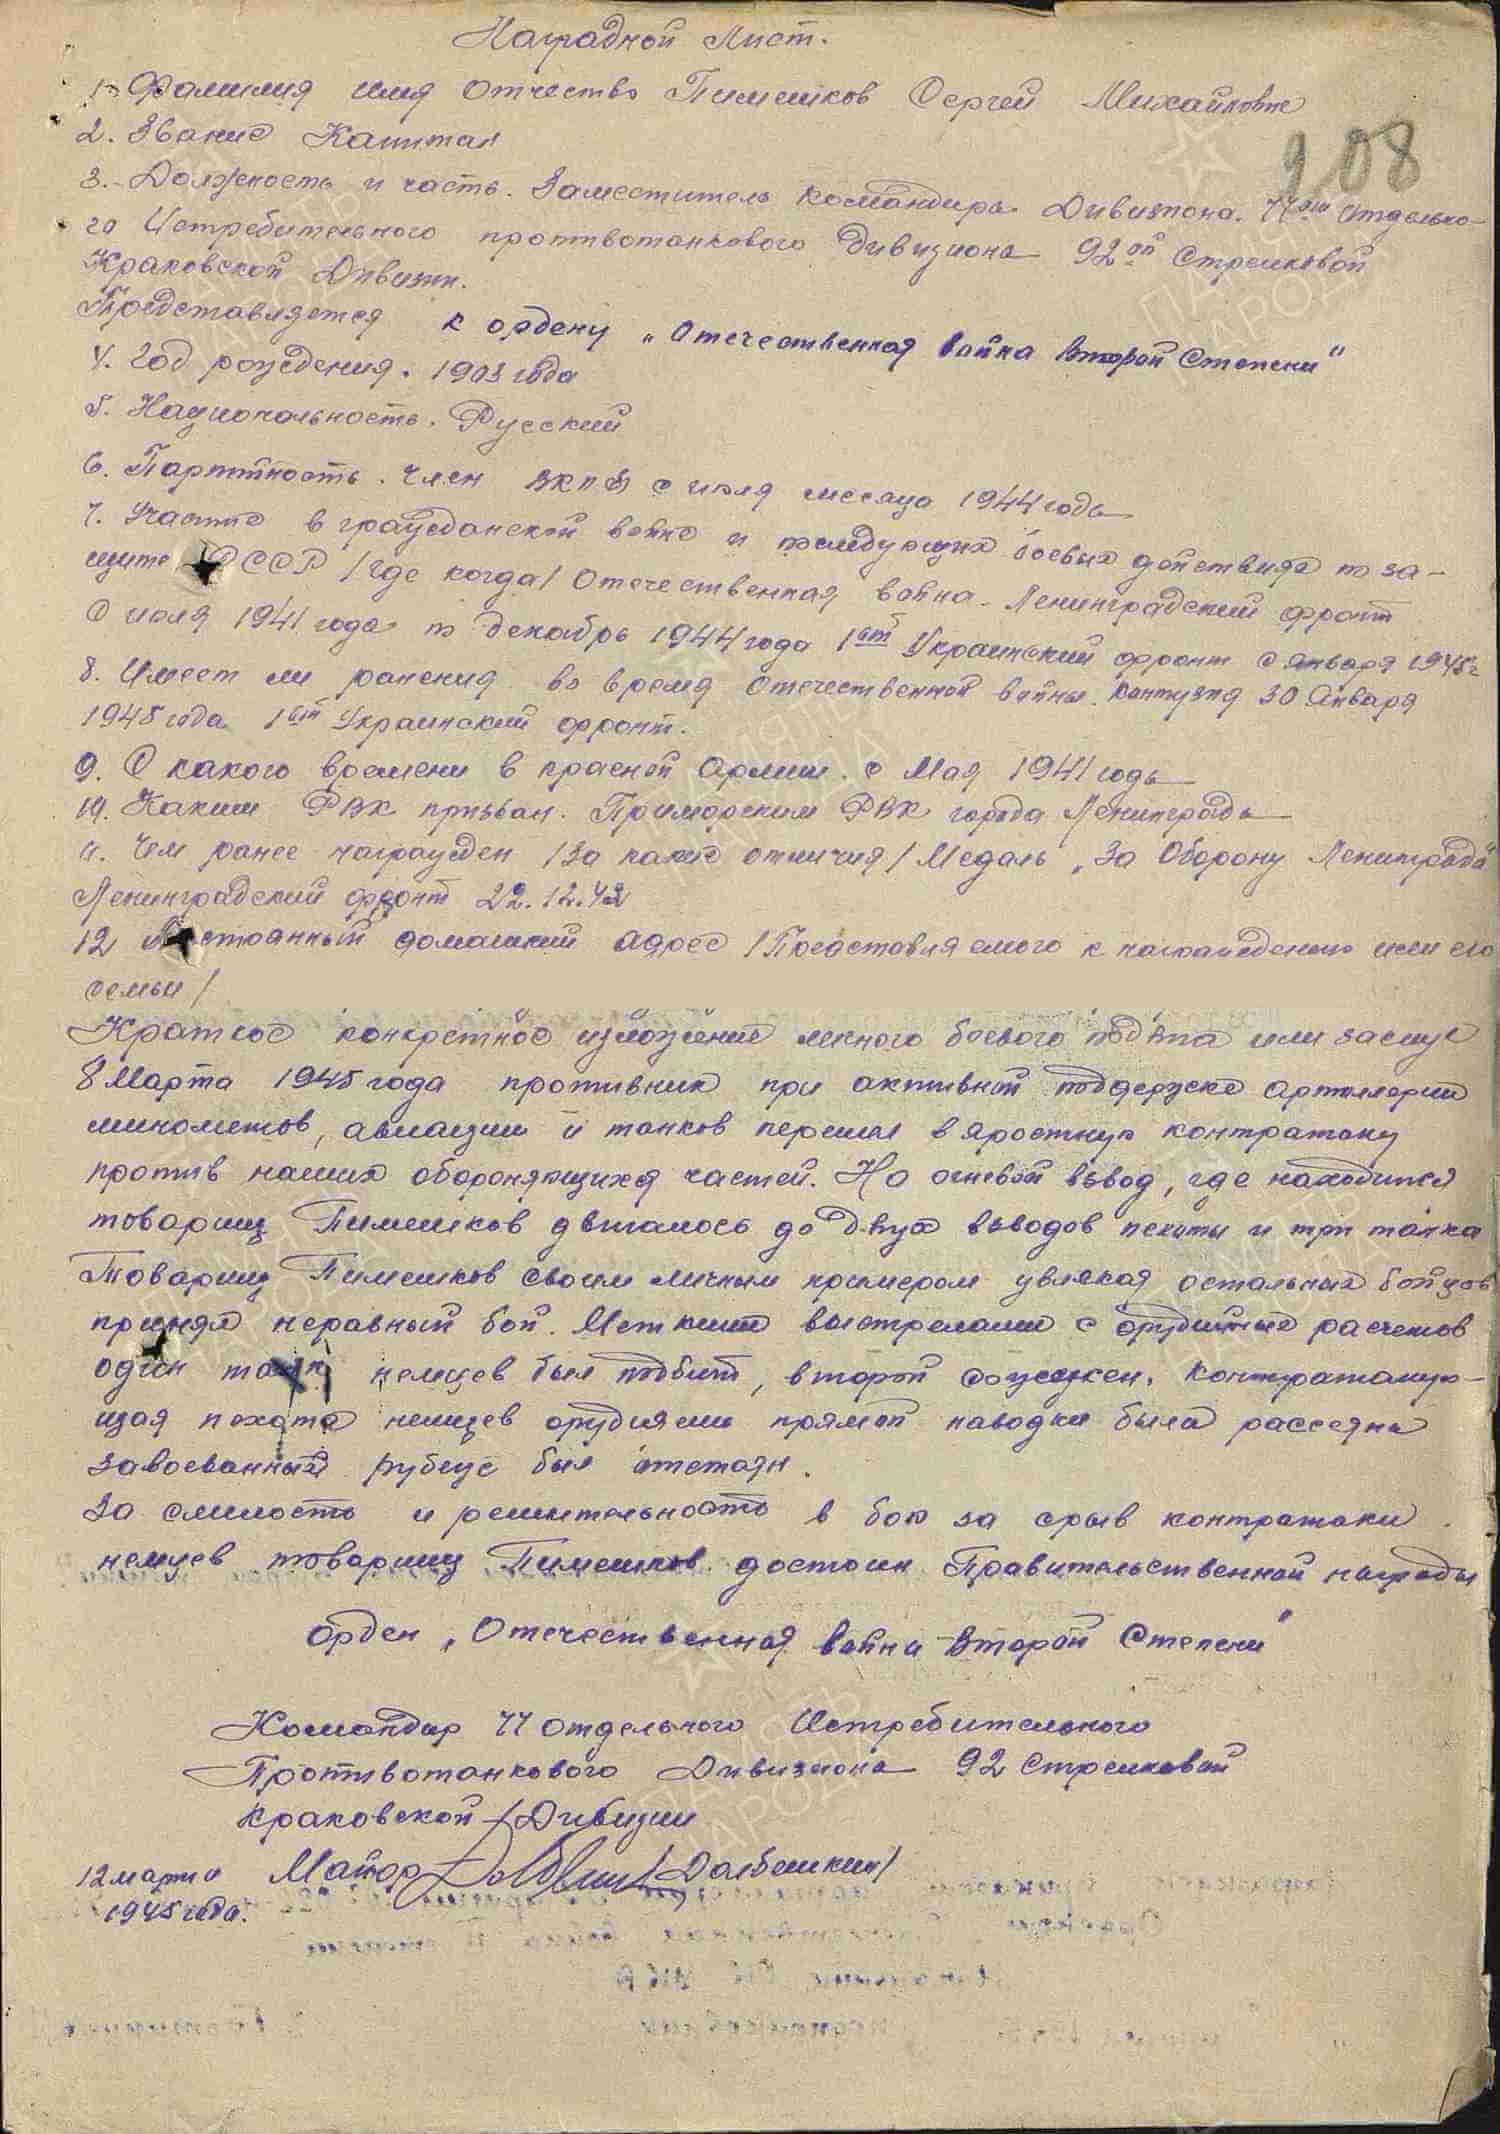 Наградной Лист.
1. Фамилия имя Отчество Пимешков Сергей Михайлович
208
2. Звание Капитан
3. Должность и часть. Заместитель командира Дивизиона. 77ого Отдельно-
го Истребительного противотанкового дивизиона 92ой Стрелковой
Краковской Дивизии.
Представляется к ордену „Отечественная война второй Степени"
4. Год рождения. 1903 года
5. Национальность. Русский
6. Партийность. Член ВКПБ с июля месяца 1944 года
7. Участие в гражданской войне и последующих боевых действиях по за-
щите СССР /где когда/ Отечественная война. Ленинградский фронт
С июля 1941 года по декабрь 1944 года 1ый Украинский фронт с января 1945 г
8. Имеет ли ранения во время Отечественной войны. Контузия 30 Января
1945 года 1ый Украинский фронт.
9. С какого времени в красной Армии. с Мая 1941 года
10. Каким РВК призван. Приморским РВК города Ленинграда
11. Чем ранее награжден /за какие отличия/ Медаль „За Оборону Ленинграда"
Ленинградский фронт 22.12.42
12 Постоянный домашний адрес /Представляемого к награждению или его
семьи/
Краткое конкретное изложение личного боевого подвига или заслуг
8 Марта 1945 года противник при активной поддержке артиллерии
минометов, авиации и танков перешел в яростную контратаку
против наших обороняющихся частей. На огневой взвод, где находился
товарищ Пимешков двигалось до двух взводов пехоты и три танка
Товарищ Пимешков своим личным примером увлекая остальных бойцов
принял неравный бой. Меткими выстрелами с орудийные расчетов
один танк немцев был подбит, второй сожжен. Контратакую-
щая пехота немцев орудиями прямой наводки была рассеяна
завоеванный рубеж был отстоян.
За смелость и решительность в бою за срыв контратаки
немцев товарищ Пимешков достоин Правительственной награды
Орден „Отечественная война Второй Степени"
Командир 77 Отдельного Истребительного
Противотанкового Дивизиона 92 Стрелковой
Краковской Дивизии
12 марта Майор /Долбешкин/
1945 года.
ПАМЯТЬ НАРОДА